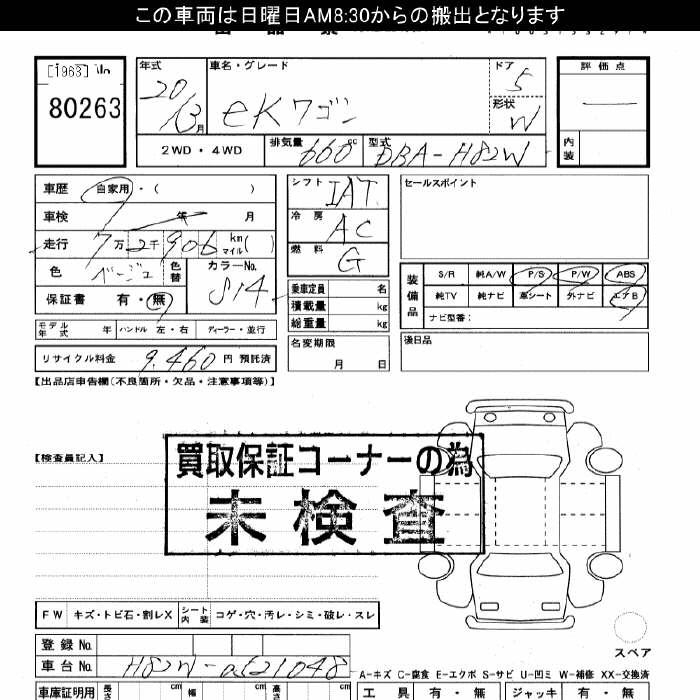 この車両は日曜日AM8:30からの搬出となります
[1963]
80263
年式 車名・グレード ドア 評価点
20 / 3月 eKワゴン 5
形状 W
2WD・4WD 排気量 660cc 型式 DBA-H82W 内装
車歴 自家用・( )
車検 年 月
走行 7万2千906 km マイル( )
色 ベージュ 色替 カラーNo. S14
保証書 有・無
モデル年式 年 ハンドル 左・右 ディーラー・並行
リサイクル料金 9,460 円 預託済
シフト IAT
冷房 AC
燃料 G
乗車定員 名
積載量 kg
総重量 kg
名変期限
月 日
セールスポイント
装備品 S/R 純A/W P/S P/W ABS
純TV 純ナビ 革シート 外ナビ エアB
ナビ型番:
後日品
【出品店申告欄(不良箇所・欠品・注意事項等)】
【検査員記入】
買取保証コーナーの為
未検査
FW キズ・トビ石・割レX シート内装 コゲ・穴・汚レ・シミ・破レ・スレ
スペア
登録No.
車台No. H82W-
A-キズ C-腐食 E-エクボ S-サビ U-凹ミ W-補修 XX-交換済
車庫証明用 長さ cm 幅 cm cm
工具 有・無 ジャッキ 有・無